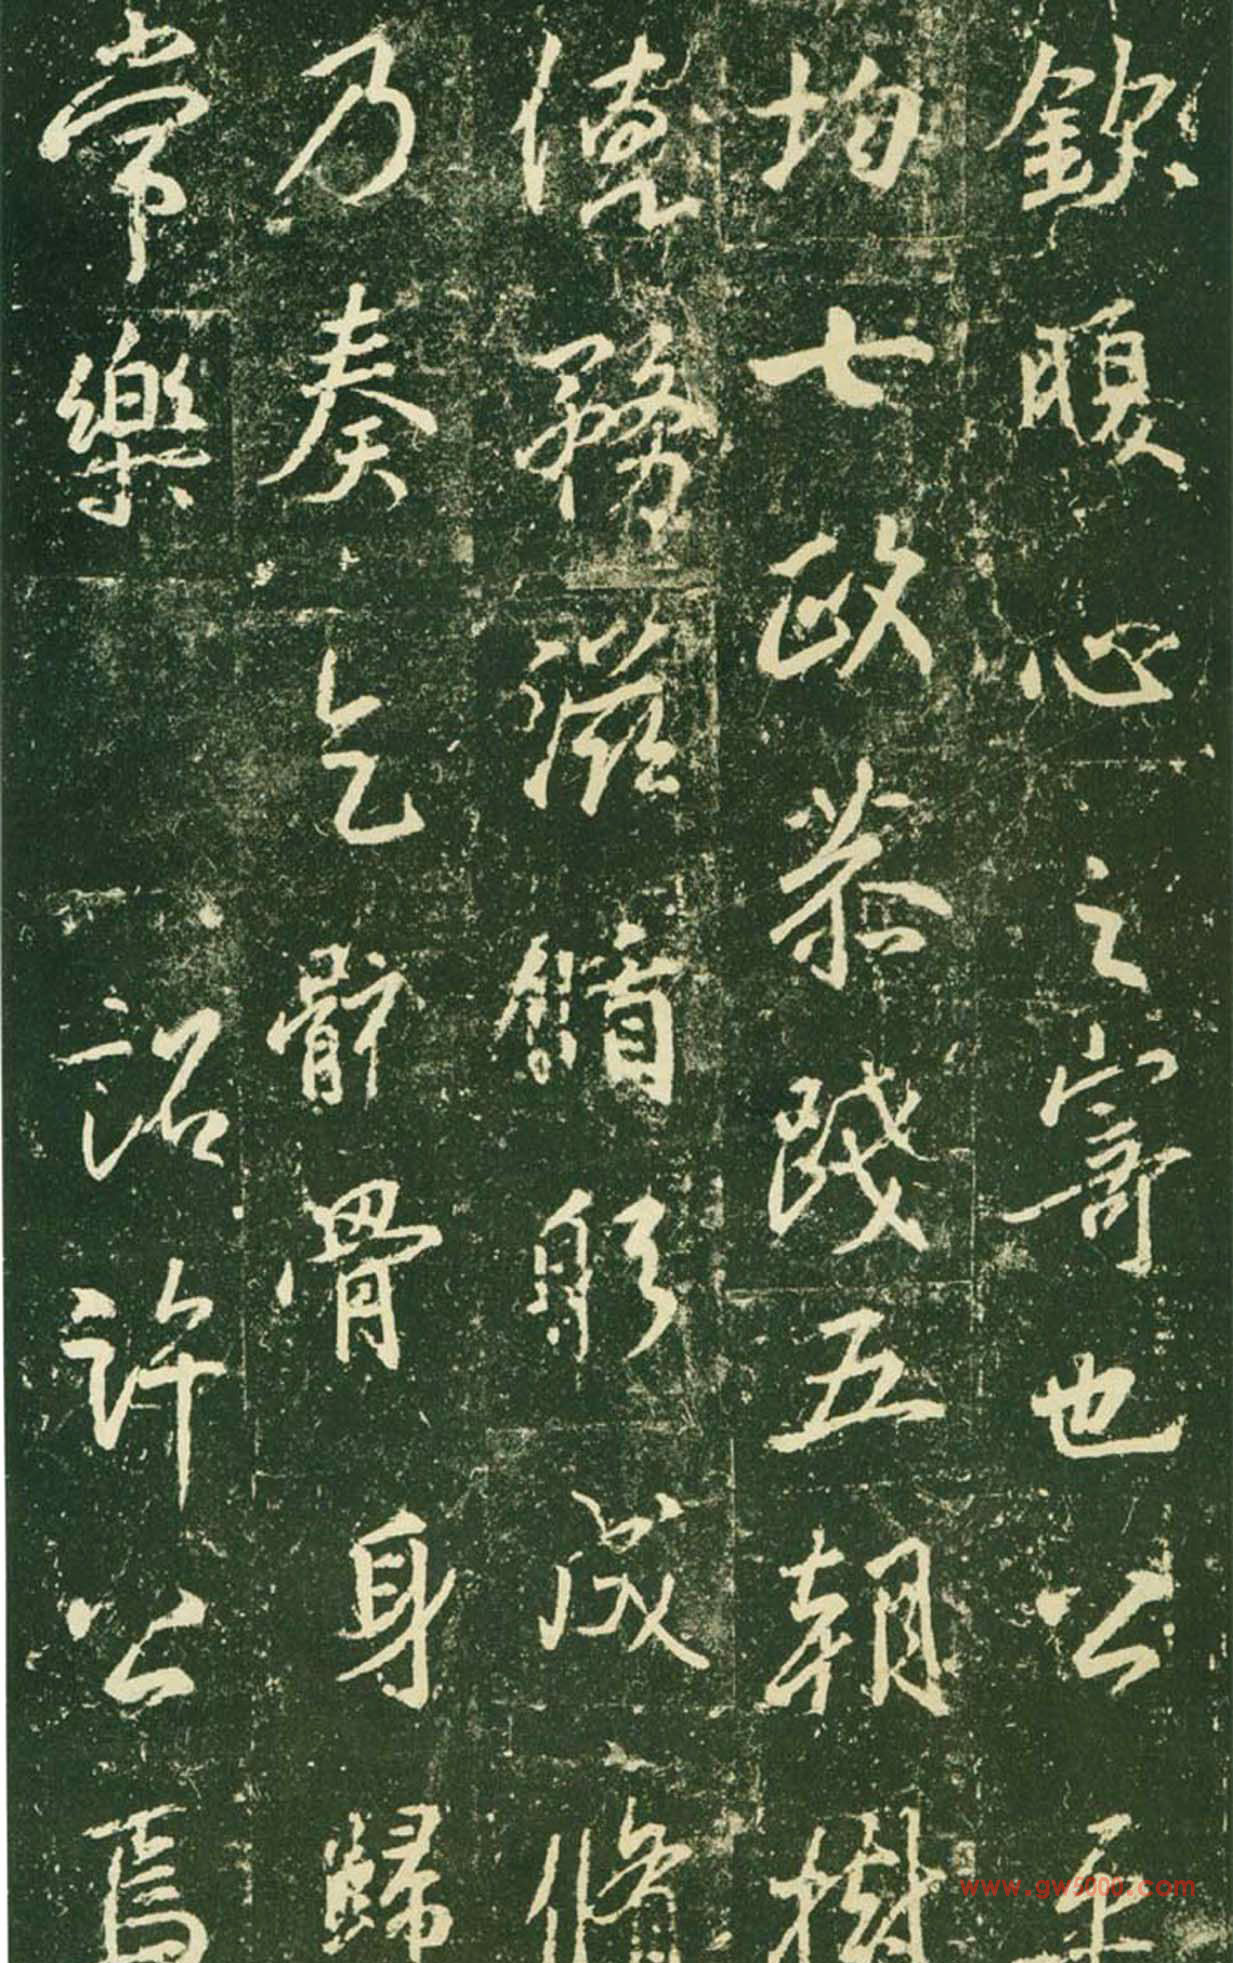 欽腹心之寄也公平
均七政恭踐五朝樹
德務滋躬成脩
乃奏乞骸骨身歸
常樂 詔許公焉
www.gw5000.com